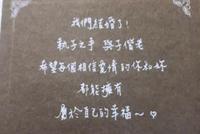 我們結婚了!
執子之手 與子偕老
希望每個相信愛情的你和妳
都能擁有
屬於自己的幸福~♡